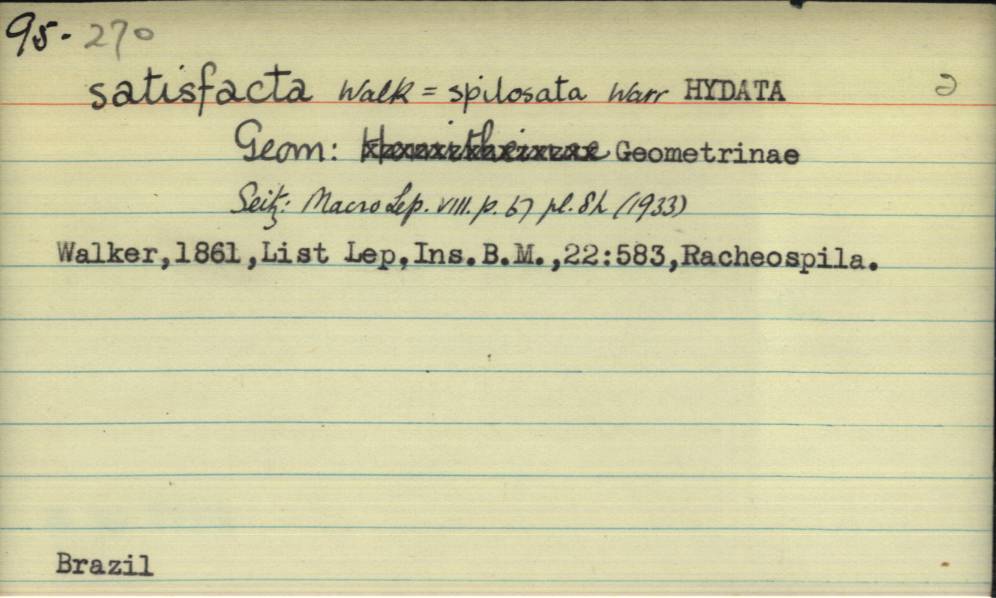 95. 270
satisfacta Walk = spilosata Warr HYDATA
Geom: Geometrinae
Seitz: Macro Lep. VIII. p. 67 pl. 8h (1933)
Walker,1861,List Lep,Ins.B.M.,22:583,Racheospila.
Brazil